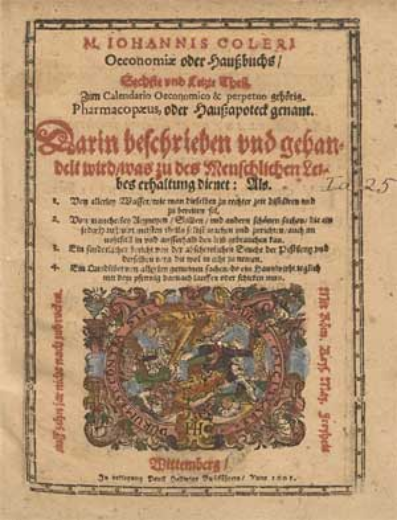 M. IOHANNIS COLERI
Oeconomiæ oder Haußbuchs/
Sechste vnd Letzte Theil.
Zum Calendario Oeconomico & perpetuo gehörig.
Pharmacopæus, oder Haußapoteck genant.
Darin beschrieben vnd gehan-
delt wird/was zu des Menschlichen Lei-
bes erhaltung dienet: Als.
1. Von allerley Wasser/wie man dieselben zu rechter zeit distilliren vnd
zu bereiten sol.
2. Von mancherley Artzneyen/Salben/vnd andern schönen sachen/die ein
jeder selbst machen vnd zurichten/auch
in vnd ausserhalb des leibs gebrauchen kan.
3. Ein sonderlicher bericht von der abschewlichen Seuche der Pestilentz vnd
derselben wol in acht zu nemen.
4. Ein von allerley gemeinen sachen/do ein Hauswirth teglich
mit dem pfennig darnach lauffen oder schicken mus.
auff zehn jar nicht nach zudrucken.
Mit Röm. Keys. May. Freyheit
DURUM PATIENTIA
HH
Wittemberg/
In verlegung Paul Helwigs Buchführers/Anno 1601.
25